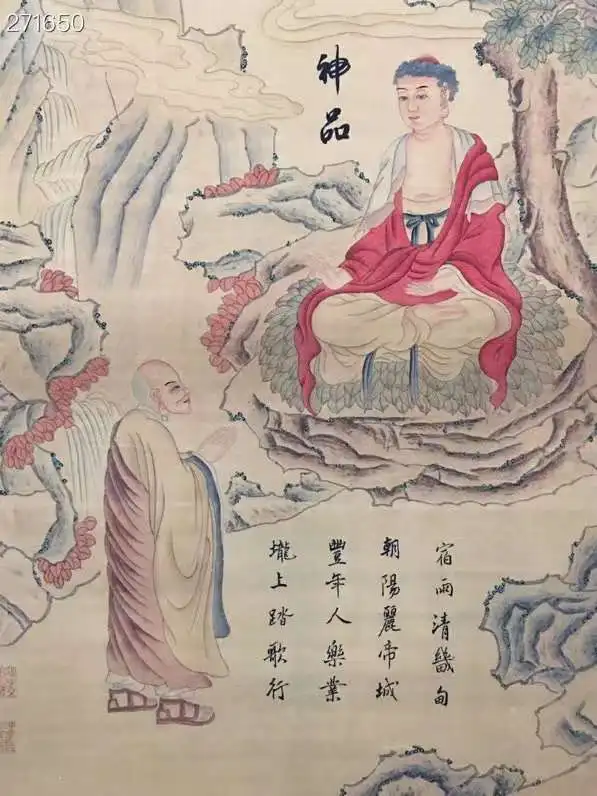 271650
神品
宿雨清畿甸
朝陽麗帝城
豐年人樂業
壠上踏歌行